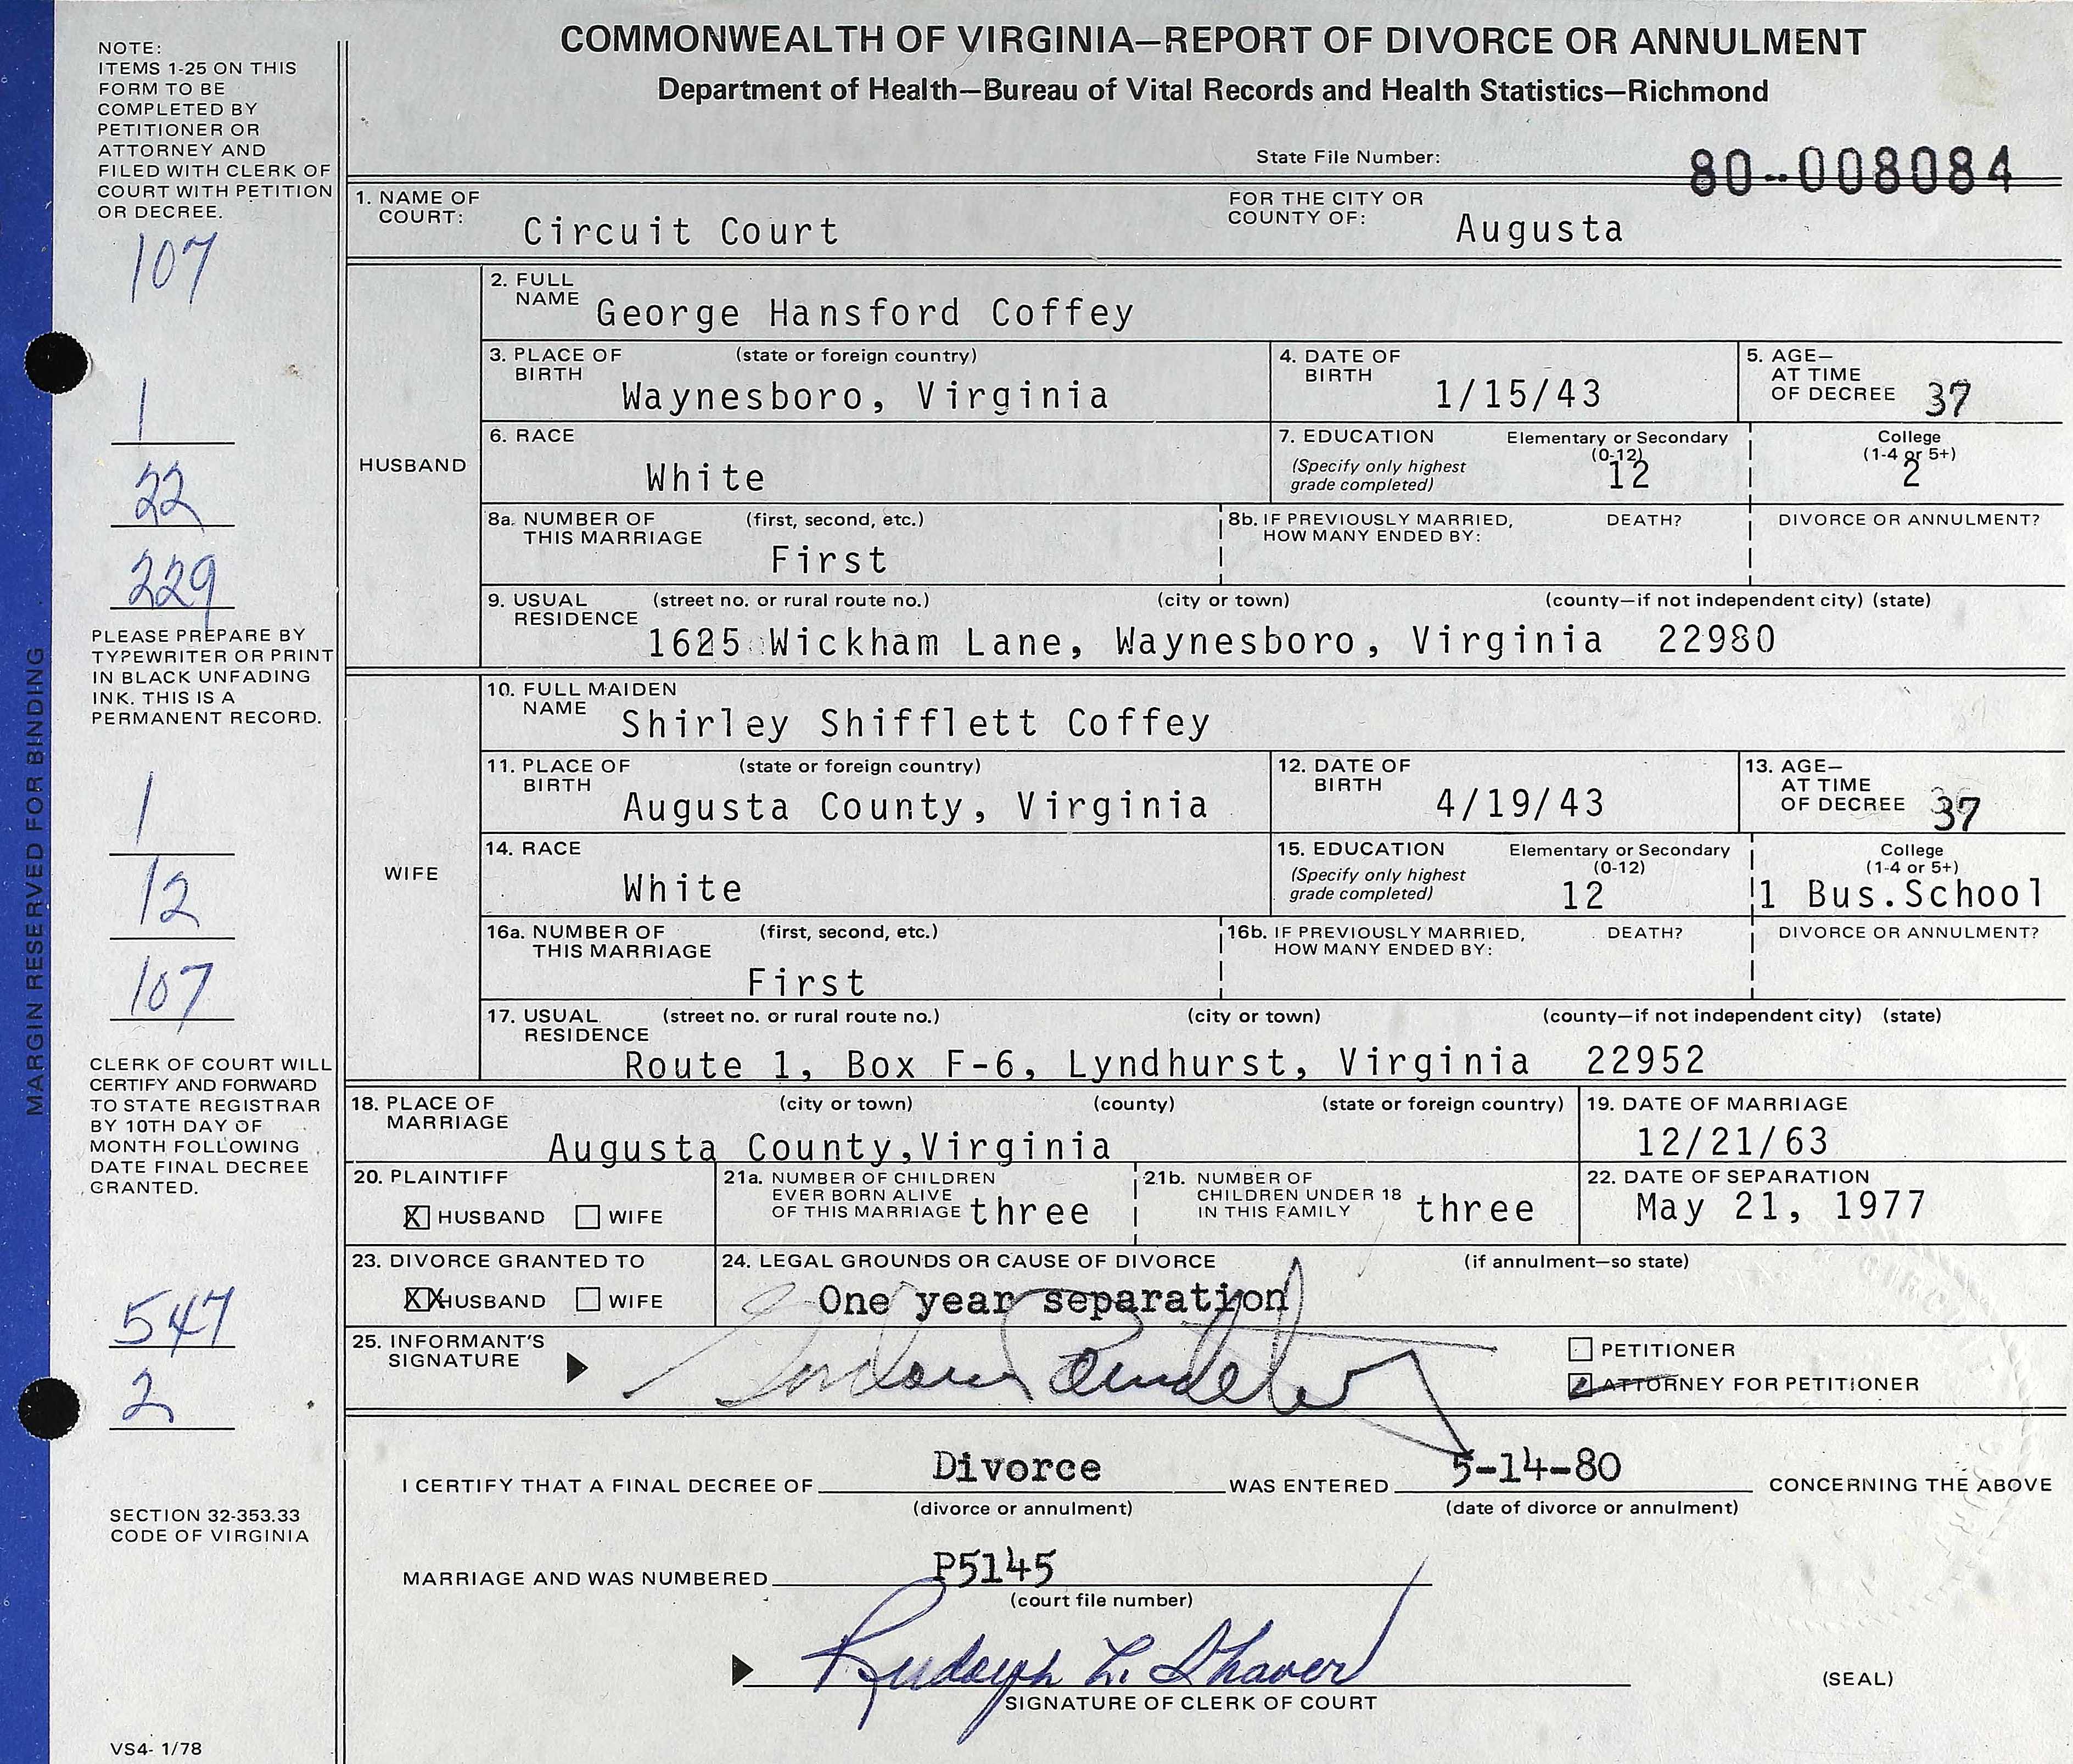 COMMONWEALTH OF VIRGINIA—REPORT OF DIVORCE OR ANNULMENT
Department of Health—Bureau of Vital Records and Health Statistics—Richmond
State File Number: 80-008084
NOTE:
ITEMS 1-25 ON THIS
FORM TO BE
COMPLETED BY
PETITIONER OR
ATTORNEY AND
FILED WITH CLERK OF
COURT WITH PETITION
OR DECREE.
107
1
22
229
PLEASE PREPARE BY
TYPEWRITER OR PRINT
IN BLACK UNFADING
INK. THIS IS A
PERMANENT RECORD.
1
12
107
CLERK OF COURT WILL
CERTIFY AND FORWARD
TO STATE REGISTRAR
BY 10TH DAY OF
MONTH FOLLOWING
DATE FINAL DECREE
GRANTED.
547
2
SECTION 32-353.33
CODE OF VIRGINIA
VS4- 1/78
MARGIN RESERVED FOR BINDING
1. NAME OF COURT: Circuit Court FOR THE CITY OR COUNTY OF: Augusta
HUSBAND
2. FULL NAME George Hansford Coffey
3. PLACE OF BIRTH (state or foreign country) Waynesboro, Virginia
4. DATE OF BIRTH 1/15/43
5. AGE— AT TIME OF DECREE 37
6. RACE White
7. EDUCATION (Specify only highest grade completed) Elementary or Secondary (0-12) 12 College (1-4 or 5+) 2
8a. NUMBER OF THIS MARRIAGE (first, second, etc.) First
8b. IF PREVIOUSLY MARRIED, HOW MANY ENDED BY: DEATH? DIVORCE OR ANNULMENT?
9. USUAL RESIDENCE (street no. or rural route no.) (city or town) (county—if not independent city) (state)
1625 Wickham Lane, Waynesboro, Virginia 22980
WIFE
10. FULL MAIDEN NAME Shirley Shifflett Coffey
11. PLACE OF BIRTH (state or foreign country) Augusta County, Virginia
12. DATE OF BIRTH 4/19/43
13. AGE— AT TIME OF DECREE 37
14. RACE White
15. EDUCATION (Specify only highest grade completed) Elementary or Secondary (0-12) 12 College (1-4 or 5+) 1 Bus.School
16a. NUMBER OF THIS MARRIAGE (first, second, etc.) First
16b. IF PREVIOUSLY MARRIED, HOW MANY ENDED BY: DEATH? DIVORCE OR ANNULMENT?
17. USUAL RESIDENCE (street no. or rural route no.) (city or town) (county—if not independent city) (state)
Route 1, Box F-6, Lyndhurst, Virginia 22952
18. PLACE OF MARRIAGE (city or town) (county) (state or foreign country) Augusta County,Virginia
19. DATE OF MARRIAGE 12/21/63
20. PLAINTIFF X HUSBAND WIFE
21a. NUMBER OF CHILDREN EVER BORN ALIVE OF THIS MARRIAGE three
21b. NUMBER OF CHILDREN UNDER 18 IN THIS FAMILY three
22. DATE OF SEPARATION May 21, 1977
23. DIVORCE GRANTED TO XX HUSBAND WIFE
24. LEGAL GROUNDS OR CAUSE OF DIVORCE (if annulment—so state)
One year separation
25. INFORMANT'S SIGNATURE
PETITIONER
ATTORNEY FOR PETITIONER
I CERTIFY THAT A FINAL DECREE OF Divorce WAS ENTERED 5-14-80 CONCERNING THE ABOVE
(divorce or annulment) (date of divorce or annulment)
MARRIAGE AND WAS NUMBERED P5145
(court file number)
Rudolph L. Shaver
SIGNATURE OF CLERK OF COURT
(SEAL)